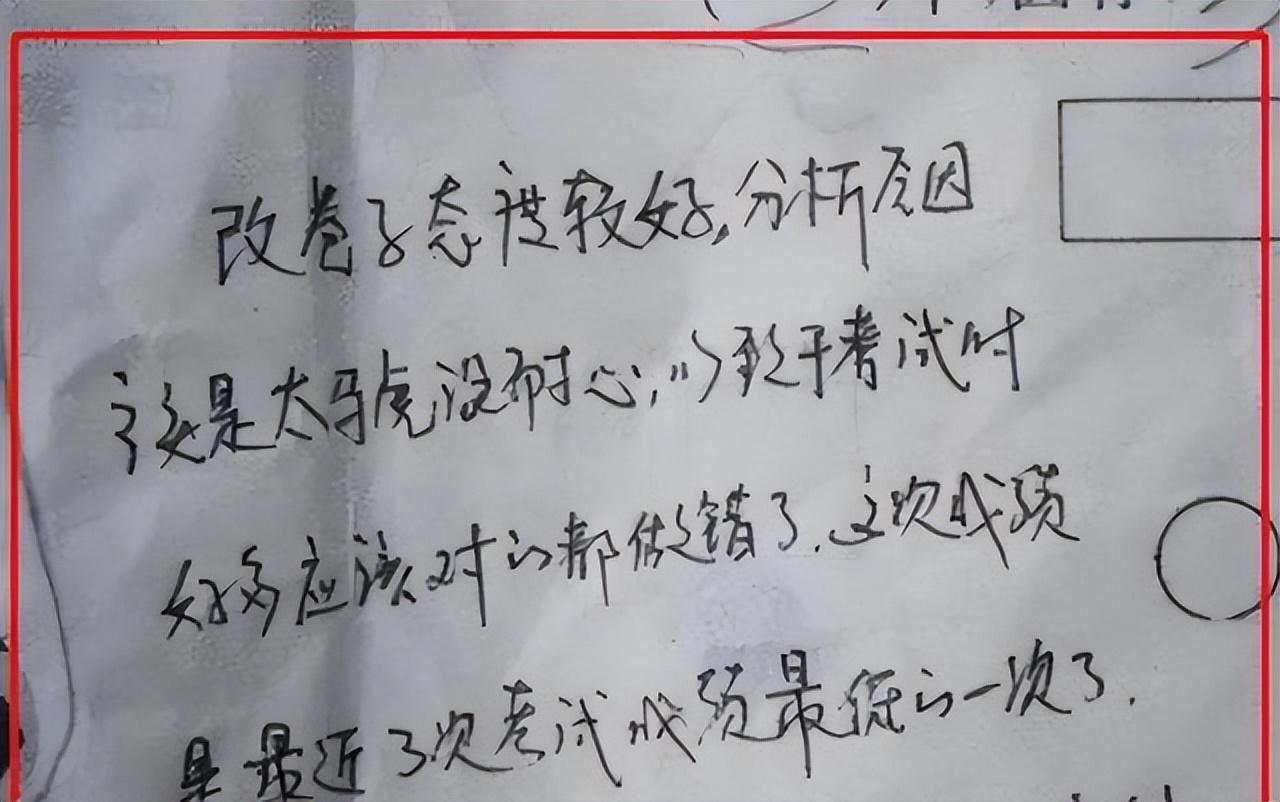 改卷子态度较好,分析原因
该是太马虎没耐心,以致于考试时
好多应该对的都做错了.这次成绩
是最近3次考试成绩最低的一次了.